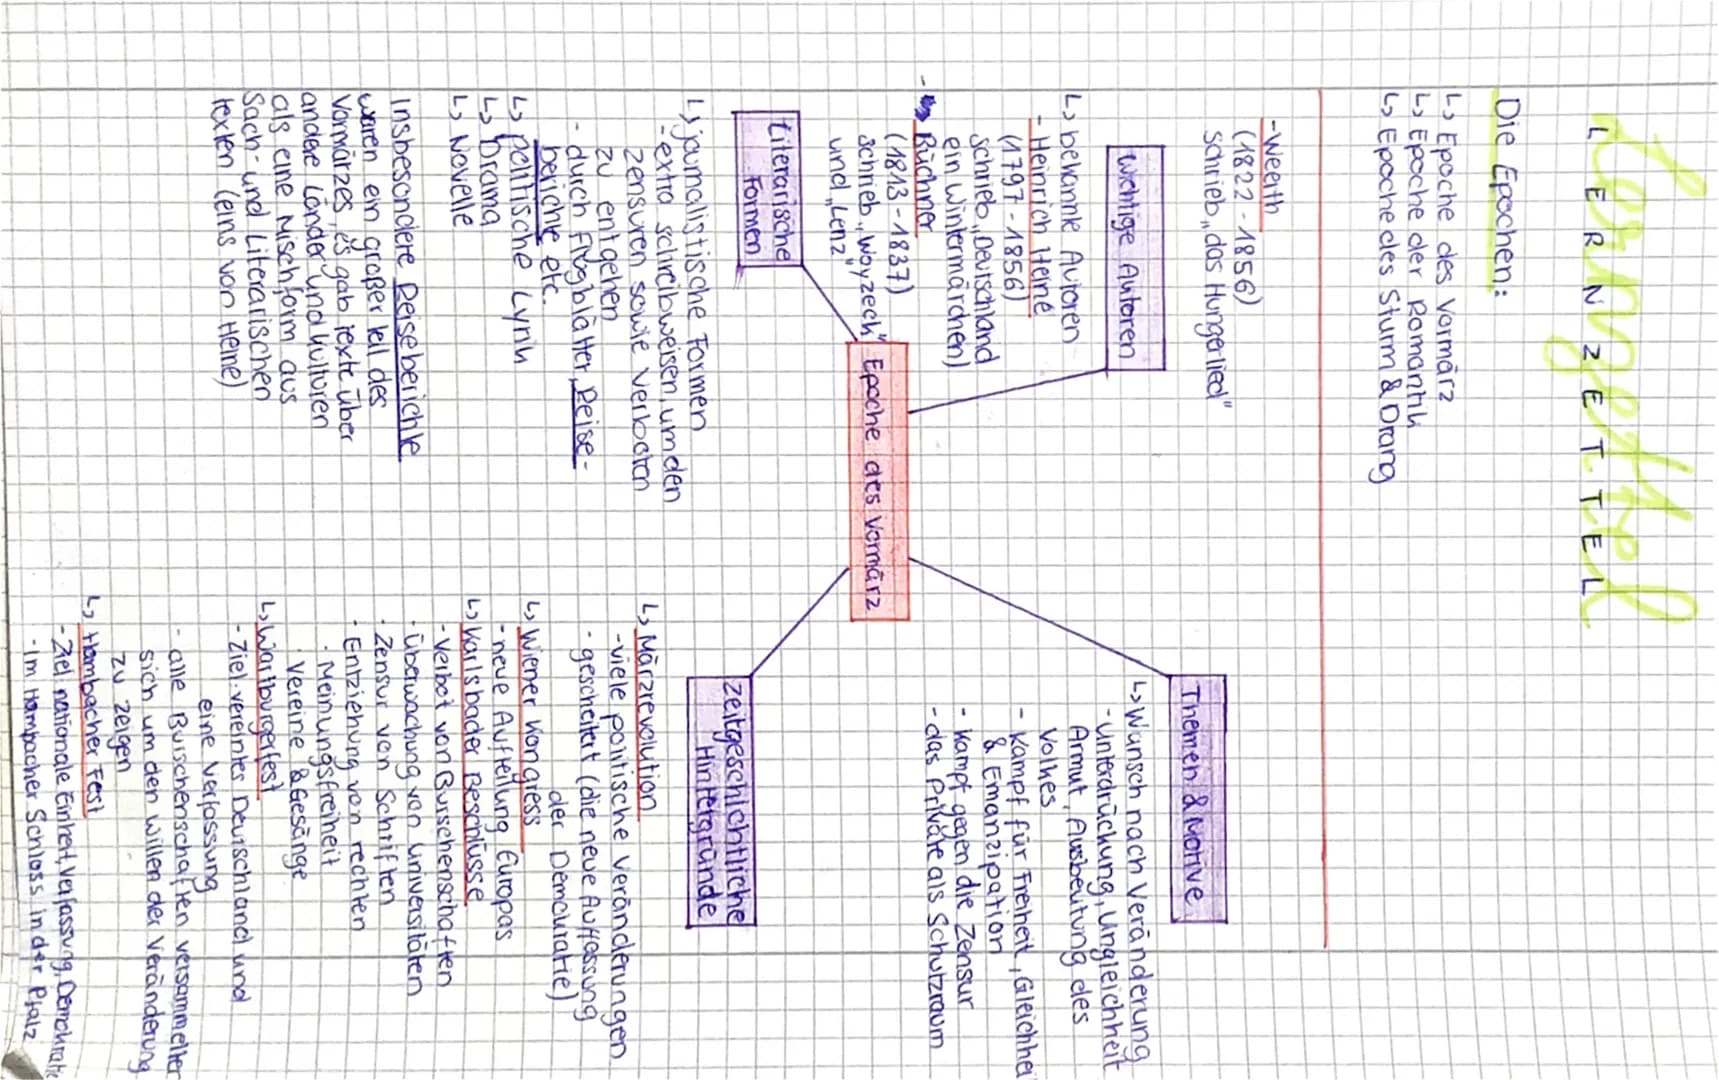 Lernzettel
LERNZETTEL
Die Epochen:
↳ Epoche des Vormärz
↳ Epoche der Romantik
↳ Epoche des Sturm & Drang
- Weerth
(1822-1856)
schrieb „das Hungerlied"
wichtige Autoren
↳ bekannte Autoren
- Heinrich Heine
(1797-1856)
schrieb „Deutschland
ein Wintermärchen)
- Büchner
(1813-1837)
schrieb „Woyzeck"
und „Lenz"
Themen & Motive
↳ Wunsch nach Veränderung
- Unterdrückung, Ungleichheit
Armut, Ausbeutung des
Volkes
- Kampf für Freiheit, Gleichhei
& Emanzipation
- Kampf gegen die Zensur
- das Private als Schutzraum
Epoche des Vormärz
Literarische
Formen
↳ journalistische Formen
- extra schreibweisen, um den
Zensuren sowie Verboten
zu entgehen
- durch Flugblätter, Reise-
berichte etc.
↳ politische Lyrik
↳ Drama
↳ Novelle
Insbesondere Reiseberichte
waren ein großer teil des
Vormärzes, es gab Texte über
andere Länder und kulturen
als eine Mischform aus
Sach- und Literarischen
texten (eins von Heine)
zeitgeschichtliche
Hintergründe
↳ Märzrevolution
- viele politische Veränderungen
- gescheitert (die neue Auffassung
der Demokratie)
↳ Wiener Kongress
- neue Aufteilung Europas
↳ Karlsbader Beschlüsse
- Verbot von Burschenschaften
- Überwachung von Universitäten
- Zensur von Schriften
- Entziehung von rechten
· Meinungsfreiheit
· Vereine & Gesänge
↳ Wartburgfest
- Ziel: vereintes Deutschland und
eine Verfassung
- alle Burschenschaften versammelten
sich um den Willen der Veränderung
zu zeigen
↳ Hambacher Fest
- Ziel nationale Einheit, Verfassung, Demokratie
- Im Hambacher Schloss in der Pfalz